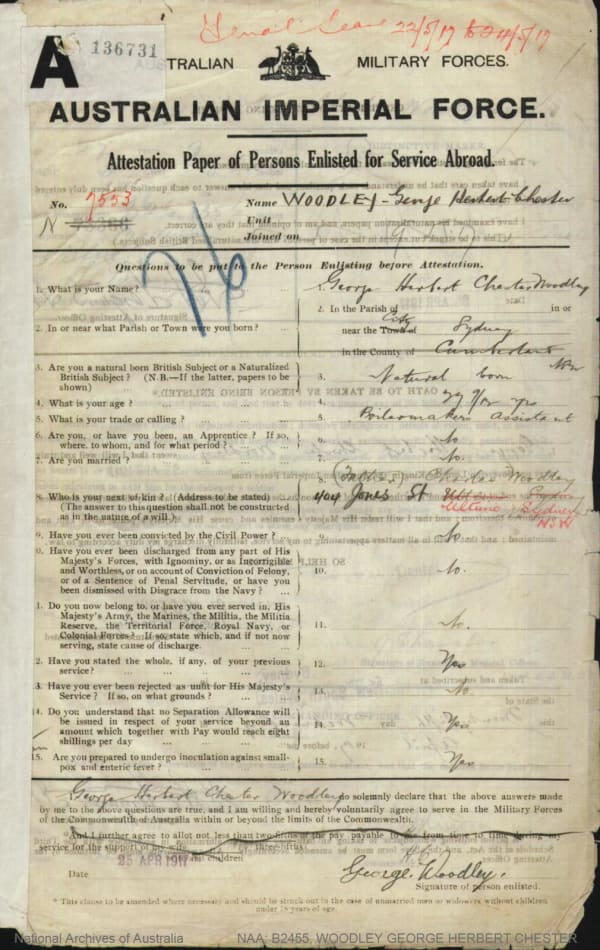 Final Leave 22/5/17 to 24/5/17
A 136731
TRALIAN MILITARY FORCES.
AUSTRALIAN IMPERIAL FORCE.
Attestation Paper of Persons Enlisted for Service Abroad.
No. 7555 Name WOODLEY - George Herbert Chester
N Unit
Joined on
76
Questions to be put to the Person Enlisting before Attestation.
1. What is your Name? 1. George Herbert Chester Woodley
2. In or near what Parish or Town were you born? 2. In the Parish of in or
near the Town of City Sydney
in the County of Cumberland
NSW
3. Are you a natural born British Subject or a Naturalized
British Subject? (N.B.—If the latter, papers to be
shown) 3. Natural born
4. What is your age? 4. 27 9/12 yrs
5. What is your trade or calling? 5. Boilermakers Assistant
6. Are you, or have you been, an Apprentice? If so,
where, to whom, and for what period? 6. No
7. Are you married? 7. No.
8. Who is your next of kin? (Address to be stated) 8. (Father) Chester Woodley
(The answer to this question shall not be constructed
as in the nature of a will.) 404 Jones St Ultimo Sydney
NSW
9. Have you ever been convicted by the Civil Power? 9. No.
0. Have you ever been discharged from any part of His
Majesty's Forces, with Ignominy, or as Incorrigible
and Worthless, or on account of Conviction of Felony,
or of a Sentence of Penal Servitude, or have you
been dismissed with Disgrace from the Navy? 10. No.
1. Do you now belong to, or have you ever served in, His
Majesty's Army, the Marines, the Militia, the Militia
Reserve, the Territorial Force, Royal Navy, or
Colonial Forces? If so, state which, and if not now
serving, state cause of discharge 11. No.
2. Have you stated the whole, if any, of your previous
service? 12. Yes
3. Have you ever been rejected as unfit for His Majesty's
Service? If so, on what grounds? 13. No
4. Do you understand that no Separation Allowance will
be issued in respect of your service beyond an
amount which together with Pay would reach eight
shillings per day 14. Yes
15. Are you prepared to undergo inoculation against small-
pox and enteric fever? 15. Yes
I, George Herbert Chester Woodley do solemnly declare that the above answers made
by me to the above questions are true, and I am willing and hereby voluntarily agree to serve in the Military Forces
of the Commonwealth of Australia within or beyond the limits of the Commonwealth.
*And I further agree to allot not less than two-fifths of the pay payable to me from time to time during my
service for the support of my wife
three-fifths and children
25 APR 1917
Date George Woodley.
Signature of person enlisted.
* This clause to be amended where necessary and should be struck out in the case of unmarried men or widowers without children
under 18 years of age.
National Archives of Australia NAA: B2455, WOODLEY GEORGE HERBERT CHESTER